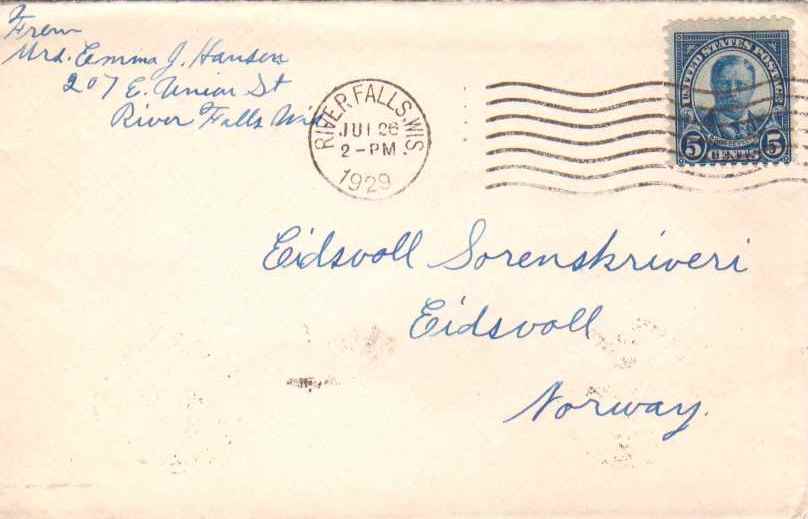 From
Mrs. Emma J. Hansen
207 E. Union St
River Falls Wis
RIVER FALLS, WIS.
JUL 26
2-PM
1929
UNITED STATES POSTAGE
5 CENTS 5
Eidsvoll Sorenskriveri
Eidsvoll
Norway.